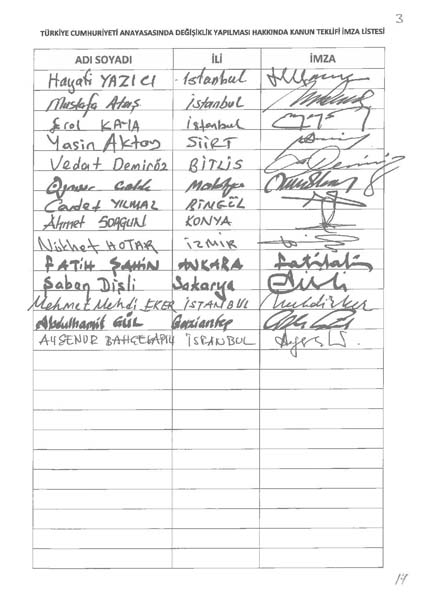 3
TÜRKİYE CUMHURİYETİ ANAYASASINDA DEĞİŞİKLİK YAPILMASI HAKKINDA KANUN TEKLİFİ İMZA LİSTESİ
ADI SOYADI İLİ İMZA
Hayati YAZICI İstanbul
Mustafa Ataş İstanbul
Erol KAYA İstanbul
Yasin Aktay SİİRT
Vedat Demiröz BİTLİS
Öznur Çalık Malatya
Cevdet YILMAZ BİNGÖL
Ahmet SORGUN KONYA
Nükhet HOTAR İZMİR
FATİH ŞAHİN ANKARA
Şaban Dişli Sakarya
Mehmet Mehdi EKER İSTANBUL
Abdulhamit GÜL Gaziantep
AYŞENUR BAHÇEKAPILI İSTANBUL
17